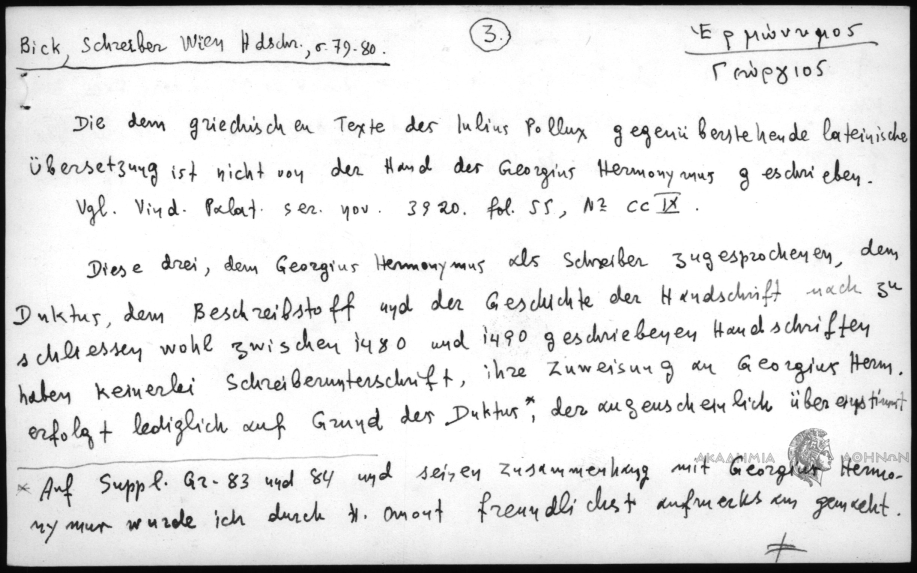 Bick, Schreiber Wien Hdschr., σ. 79-80.
3.
Ἑρμώνυμος
Γεώργιος
Die dem griechischen Texte des Iulius Pollux gegenüberstehende lateinische
Übersetzung ist nicht von der Hand des Georgius Hermonymus geschrieben.
Vgl. Vind. Palat. ser. nov. 3920. fol. 55, N° CC IX.
Diese drei, dem Georgius Hermonymus als Schreiber zugesprochenen, dem
Duktus, dem Beschreibstoff und der Geschichte der Handschrift nach zu
schliessen wohl zwischen 1480 und 1490 geschriebenen Handschriften
haben keinerlei Schreiberunterschrift, ihre Zuweisung an Georgius Herm.
erfolgt lediglich auf Grund des Duktus*, der augenscheinlich übereinstimmt
ΑΚΑΔΗΜΙΑ ΑΘΗΝΩΝ
* Auf Suppl. Gr. 83 und 84 und seinen Zusammenhang mit Georgius Hermo-
nymus wurde ich durch H. Omont freundlichst aufmerksam gemacht.